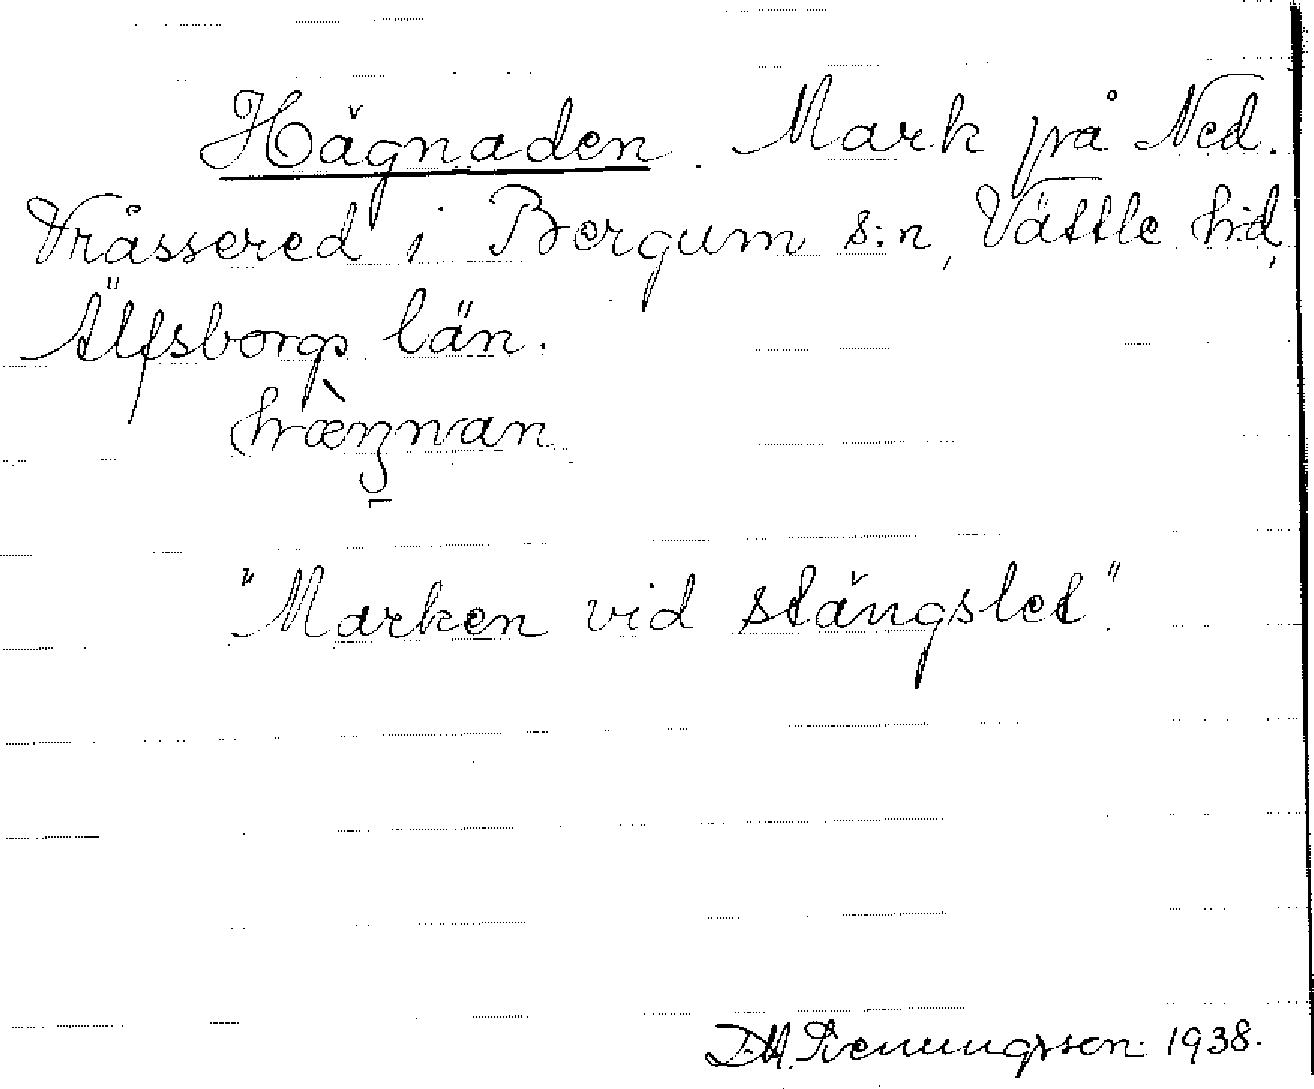 Hägnaden. Mark på Ned.
Vråssered i Bergum s:n, Vättle hd,
Älfsborgs län.
"Marken vid stängslet".
1938.